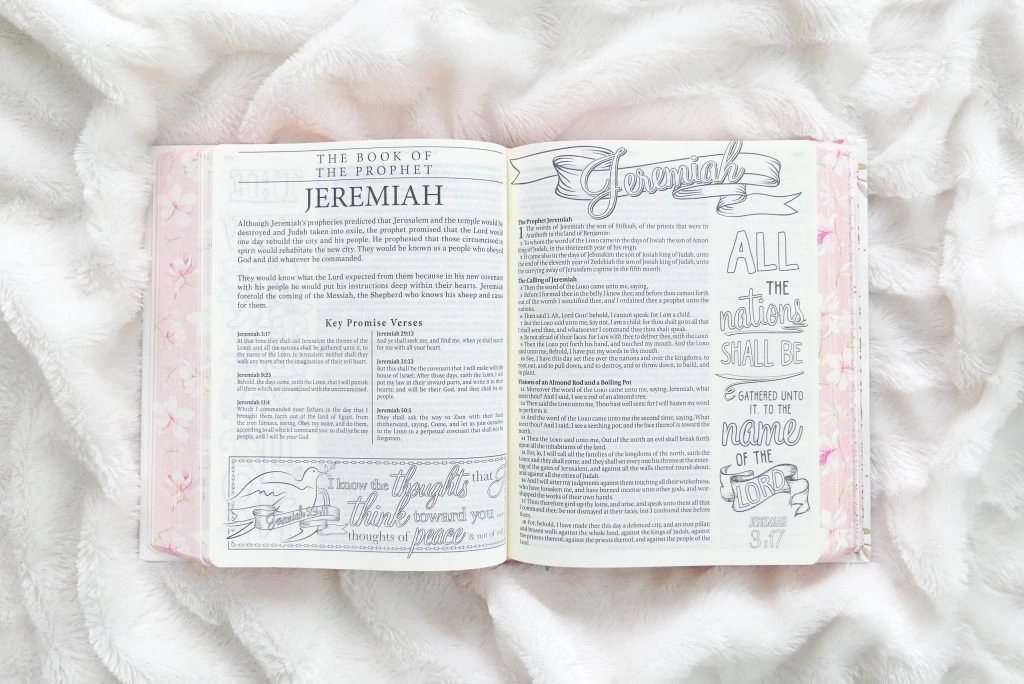 THE BOOK OF
THE PROPHET
JEREMIAH
Although Jeremiah's prophecies predicted that Jerusalem and the temple would be
destroyed and Judah taken into exile, the prophet promised that the Lord would
one day rebuild the city and his people. He prophesied that those circumcised in
spirit would rehabitate the new city. They would be known as a people who obeyed
God and did whatever he commanded.
They would know what the Lord expected from them because in his new covenant
with his people he would put his instructions deep within their hearts. Jeremiah
foretold the coming of the Messiah, the Shepherd who knows his sheep and cares
for them.
Key Promise Verses
Jeremiah 3:17
At that time they shall call Jerusalem the throne of the
LORD; and all the nations shall be gathered unto it, to
the name of the LORD, to Jerusalem: neither shall they
walk any more after the imagination of their evil heart.
Jeremiah 9:25
Behold, the days come, saith the LORD, that I will punish
all them which are circumcised with the uncircumcised.
Jeremiah 11:4
Which I commanded your fathers in the day that I
brought them forth out of the land of Egypt, from
the iron furnace, saying, Obey my voice, and do them,
according to all which I command you: so shall ye be my
people, and I will be your God
Jeremiah 29:13
And ye shall seek me, and find me, when ye shall search
for me with all your heart.
Jeremiah 31:33
But this shall be the covenant that I will make with the
house of Israel; After those days, saith the LORD, I will
put my law in their inward parts, and write it in their
hearts; and will be their God, and they shall be my
people.
Jeremiah 50:5
They shall ask the way to Zion with their faces
thitherward, saying, Come, and let us join ourselves
to the LORD in a perpetual covenant that shall not be
forgotten.
I know the thoughts that I
think toward you
thoughts of peace & not of evil
Jeremiah
Jeremiah
The Prophet Jeremiah
1 The words of Jeremiah the son of Hilkiah, of the priests that were in
Anathoth in the land of Benjamin:
2 To whom the word of the LORD came in the days of Josiah the son of Amon
king of Judah, in the thirteenth year of his reign.
3 It came also in the days of Jehoiakim the son of Josiah king of Judah, unto
the end of the eleventh year of Zedekiah the son of Josiah king of Judah, unto
the carrying away of Jerusalem captive in the fifth month.
The Calling of Jeremiah
4 Then the word of the LORD came unto me, saying,
5 Before I formed thee in the belly I knew thee; and before thou camest forth
out of the womb I sanctified thee, and I ordained thee a prophet unto the
nations.
6 Then said I, Ah, Lord GOD! behold, I cannot speak: for I am a child.
7 But the LORD said unto me, Say not, I am a child: for thou shalt go to all that
I shall send thee, and whatsoever I command thee thou shalt speak.
8 Be not afraid of their faces: for I am with thee to deliver thee, saith the LORD.
9 Then the LORD put forth his hand, and touched my mouth. And the LORD
said unto me, Behold, I have put my words in thy mouth.
10 See, I have this day set thee over the nations and over the kingdoms, to
root out, and to pull down, and to destroy, and to throw down, to build, and
to plant.
Visions of an Almond Rod and a Boiling Pot
11 Moreover the word of the LORD came unto me, saying, Jeremiah, what
seest thou? And I said, I see a rod of an almond tree.
12 Then said the LORD unto me, Thou hast well seen: for I will hasten my word
to perform it.
13 And the word of the LORD came unto me the second time, saying, What
seest thou? And I said, I see a seething pot; and the face thereof is toward the
north.
14 Then the LORD said unto me, Out of the north an evil shall break forth
upon all the inhabitants of the land.
15 For, lo, I will call all the families of the kingdoms of the north, saith the
LORD; and they shall come, and they shall set every one his throne at the enter-
ing of the gates of Jerusalem, and against all the walls thereof round about,
and against all the cities of Judah.
16 And I will utter my judgments against them touching all their wickedness,
who have forsaken me, and have burned incense unto other gods, and wor-
shipped the works of their own hands.
17 Thou therefore gird up thy loins, and arise, and speak unto them all that
I command thee: be not dismayed at their faces, lest I confound thee before
them.
18 For, behold, I have made thee this day a defenced city, and an iron pillar,
and brasen walls against the whole land, against the kings of Judah, against
the princes thereof, against the priests thereof, and against the people of the
land.
ALL
THE
nations
SHALL BE
GATHERED UNTO
IT, TO THE
name
OF THE
LORD
JEREMIAH
3:17